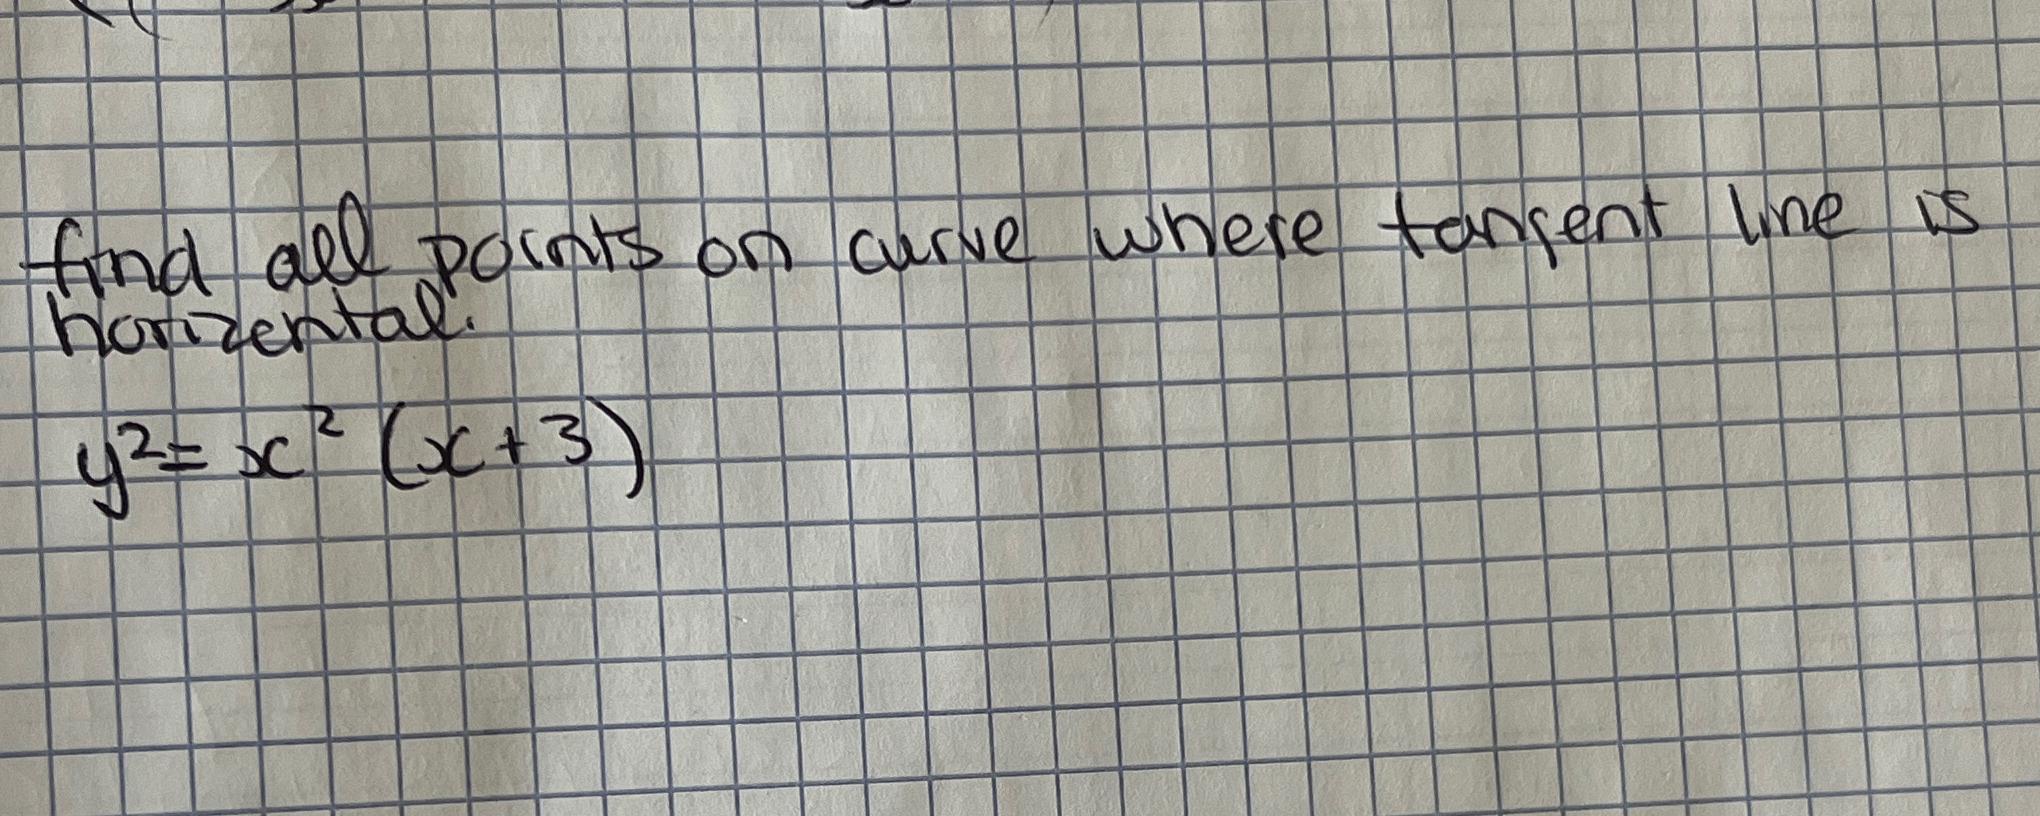 find all points on curve where tangent line is
horizental.
y² = x² (x + 3)